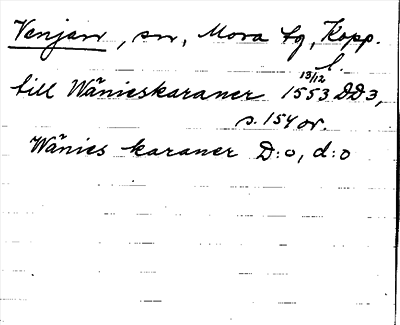 Venjan, sn, Mora tg, Kopp. l.
till Wänieskaraner 13/12 1553 DD3,
s. 154 or.
Wänies karaner D:o, d:o